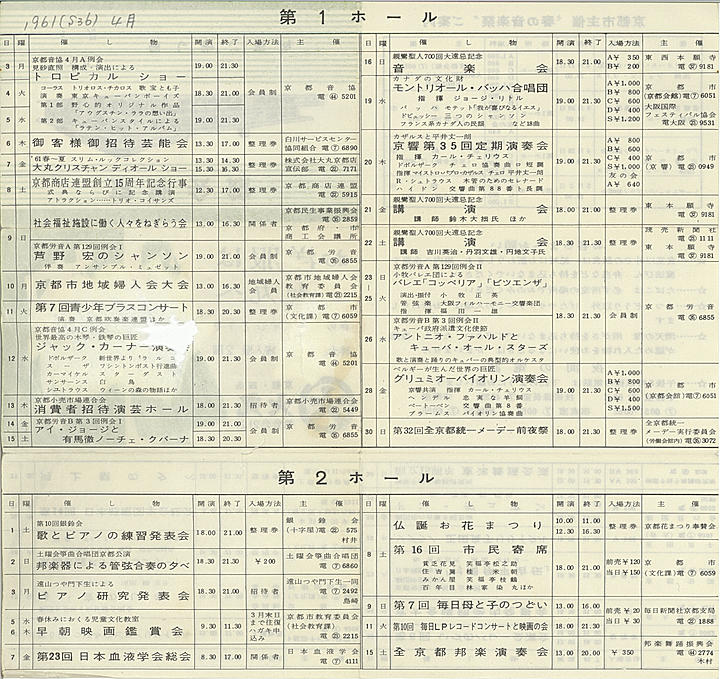 1961(S36) 4月
第1ホール
日 曜 催し物 開演 終了 入場方法 主催
3 月
京都音協4月A例会
見砂直照 構成・演出による
トロピカル ショー
19.00 21.30
4 火
コーラス トリオロス・チカロス 歌 宝とも子
演奏 東京キューバンボーイズ
第1部 野心的オリジナル作品
「アウグスチン・ララの想い出」
18.30 21.00
会員制
京都音協
電㊹5201
5 水
第2部 キューバンスタイルによる
「ラテン・ヒット・アルバム」
18.30 21.00
6 木 御客様御招待芸能会 13.00 17.00 整理券
白川サービスセンター
協同組合 電⑦6890
7 金
'61春〜夏 スリム・ルックコレクション
大丸クリスチャン ディオール ショー
13.30 14.30
15.30 17.30
整理券
株式会社大丸京都店
宣伝部 電㉒7171
8 土
京都商店連盟創立15周年記念行事
式典ならびに記念講演
アトラクション……トリオ・コイサンズ
12.30 17.00
整理券
京都商店連盟
電㉒5915
9 日
社会福祉施設に働く人々をねぎらう会
13.00 16.30
関係者
京都民生事業振興会
電㉟2859
京都府・市
商工会議所
京都労音A第129回例会I
芦野 宏のシャンソン
伴奏 アンサンブル・ミュゼット
19.00 21.00
会員制
京都労音
電㉟6855
10 月 京都市地域婦人会大会 13.00 16.30
地域婦人
会員
京都市地域婦人会
教育委員会
(社会教育課)電㉒2215
11 火
第7回青少年ブラスコンサート
演奏 京都吹奏楽連盟ほか
18.30 20.30
整理券
京都市
(文化課) 電⑦6059
12 水
京都音協4月C例会
世界最高の木琴・鉄琴の巨匠
ジャック・カーナー演奏会
ドボルザーク 新世界より「ラルゴ」
スーザ ワシントンポスト行進曲
カーマイケル スターダスト
サンサーンス 白鳥
シュトラウス ウィーンの森の物語ほか
19.00 21.30
会員制
京都音協
電㊹5201
13 木 消費者招待演芸ホール 18.00 21.30 招待者
京都小売市場連合会
電㉒5449
14 金
15 土
京都労音B第3回例会I
アイ・ジョージと
有馬徹のノーチェ・クバーナ
18.30 21.00
18.30 20.30
会員制
京都労音
電㉟6855
日 曜 催し物 開演 終了 入場方法 主催
16 日
親鸞聖人700回大遠忌記念
音楽会
18.30 21.30
A¥350
B¥200
東西本願寺
電㊲9181
19 水
カナダの文化財
モントリオール・バッハ合唱団
指揮 ジョージ・リトル
バッハ モテット「我が喜びなるイエス」
ドビュッシー 三つのシャンソン
フランス系カナダ人の民謡 など18曲
19.00 21.30
A¥1,000
B¥800
C¥600
D¥400
S¥1,200
京都市
(京都会館)電⑦6051
大阪国際
フェスティバル協会
電大阪㉓9531
20 木
カザルスと平井丈一朗
京響第35回定期演奏会
指揮 カール・チェリウス
ドボルザーク チェロ協奏曲ロ短調
指揮マイストロ・パブロ・カザルス チェロ 平井丈一朗
R・シュトラウス 木管のためのセレナード
ハイドン 交響曲第88番ト長調
19.00 21.30
A¥800
B¥600
C¥400
S¥1,000
友の会
¥640
京都市
(京響) 電㉓0949
21 金
親鸞聖人700回大遠忌記念
講演会
講師 鈴木大拙氏 ほか
18.00 21.00
整理券
東本願寺
電㊲9181
22 土
親鸞聖人700回大遠忌記念
講演会
講師 吉川英治・丹羽文雄・円地文子氏
18.00 21.30
整理券
読売新聞社
電㉓1111
東本願寺
電㊲9181
23 日
25 火
京都労音A第129回例会II
小牧バレエ団による
バレエ「コッペリア」「ピツエンザ」
演出・振付 小牧正英
管弦楽 大阪フィルハーモニー交響楽団
指揮 福田一雄
18.30 21.00
会員制
京都労音
電㉟6855
26 水
京都労音B第3回例会II
キューバ政府派遣文化使節
アントニオ・ファハルドと
キューバ・オール・スターズ
歌と演奏と踊りのキューバーの典型的オルケスタ
28 金
ベルギーが生んだ世界の巨匠
グリュミオーバイオリン演奏会
京響共演 指揮 カール・チェリウス
ヘンデル 忠実な羊飼
バートーベン 交響曲第8番
ブラームス バイオリン協奏曲
19.00 21.30
A¥1,000
B¥800
C¥600
D¥400
S¥1,200
京都市
(京都会館)電⑦6051
30 日 第32回全京都統一メーデー前夜祭 18.00 21.30 整理券
全京都統一
メーデー実行委員会
(労働会館内)電㊱3072
第2ホール
日 曜 催し物 開演 終了 入場方法 主催
1 土
第10回銀鈴会
歌とピアノの練習発表会
18.00 21.00
整理券
銀鈴会
(十字屋)電㉒575
村井
2 日
土曜会箏曲合唱団京都公演
邦楽器による管弦合奏の夕べ
18.30 21.30
¥200
土曜会箏曲合唱団
電⑦6860
3 月
遠山つや門下生による
ピアノ研究発表会
18.30 21.00
招待者
遠山つや門下生一同
電⑦2492
島崎
5 水
6 木
春休みにおくる児童文化教室
早朝映画鑑賞会
9.30 11.30
3月末日
まで往復
ハガキ申
込み
京都市教育委員会
(社会教育課)
電㉒2215
7 金 第23回 日本血液学会総会 8.30 17.00 関係者
日本血液学会
電⑦4111
日 曜 催し物 開演 終了 入場方法 主催
8 土
仏誕お花まつり
10.00 11.00
12.30 16.30
整理券
京都花まつり奉賛会
第16回 市民寄席
貧乏花見 笑福亭松之助
住吉駕 桂米朝
みかん屋 笑福亭枝鶴
百年目 林家染丸ほか
18.00 21.00
前売¥120
当日¥150
京都市
(文化課) 電⑦6059
9 日 第7回 毎日母と子のつどい 13.00 16.00
11 火 第10回 毎日LPレコードコンサートと映画の会 18.00 21.00
前売¥20
当日¥30
毎日新聞社京都支局
電㉒1888
15 土 全京都邦楽演奏会 13.00 20.00 ¥350
邦楽舞踊振興会
電㊹2774
木村